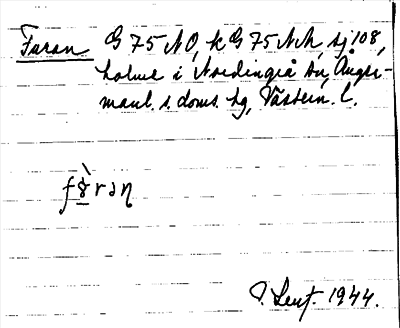 Faran G 75 NO, k G 75 NN, sj 108,
holme i Nordingrå sn, Ånger-
manl. s. doms. hg, Västern. l.
fɤ̀rən
1944.